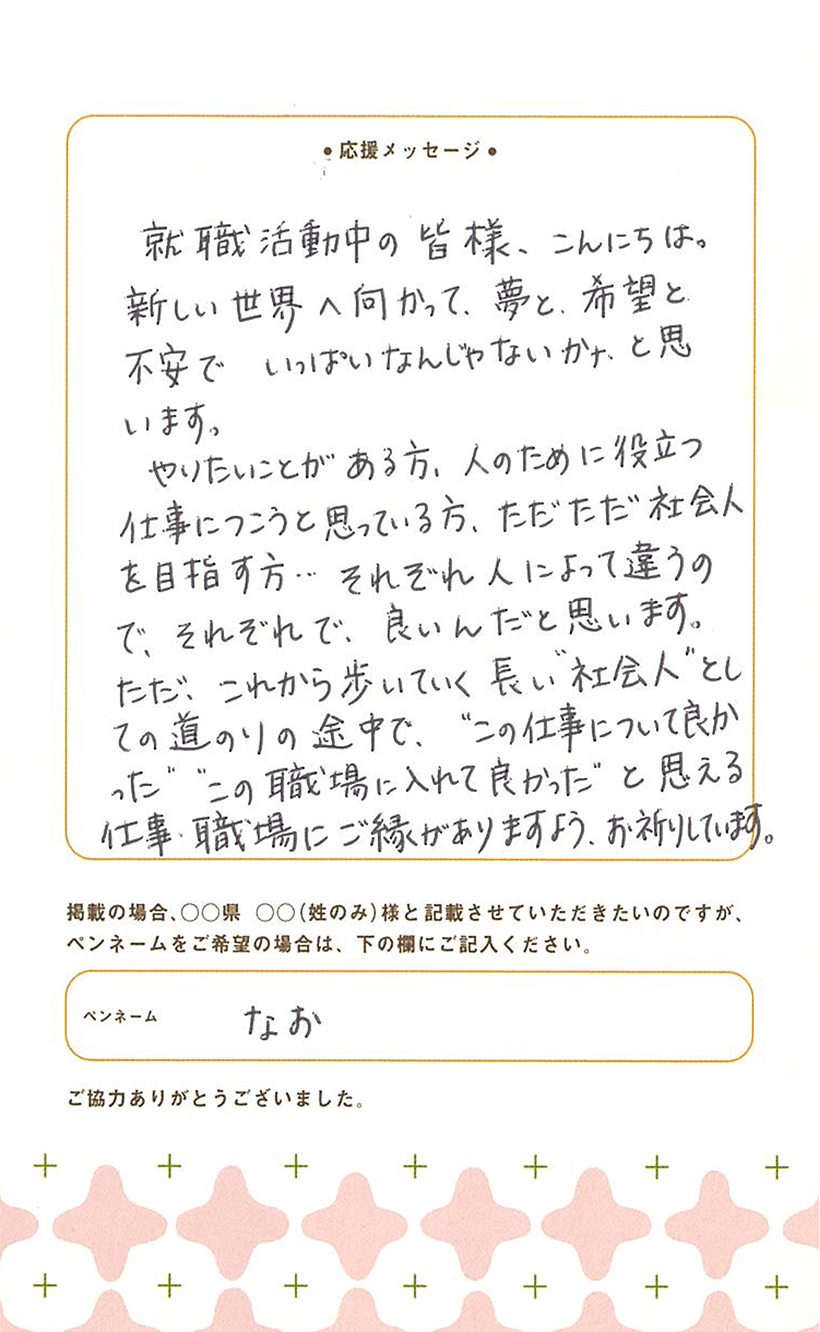 •応援メッセージ•
就職活動中の皆様、こんにちは。
新しい世界へ向かって、夢と、希望と
不安で いっぱいなんじゃないかナ、と思
います。
やりたいことがある方、人のために役立つ
仕事につこうと思っている方、ただただ社会人
を目指す方… それぞれ人によって違うの
で、それぞれで、良いんだと思います。
ただ、これから歩いていく長い"社会人"とし
ての道のりの途中で、"この仕事について良か
った" "この職場に入れて良かった" と思える
仕事・職場にご縁がありますよう、お祈りしています。
掲載の場合、○○県 ○○(姓のみ)様と記載させていただきたいのですが、
ペンネームをご希望の場合は、下の欄にご記入ください。
ペンネーム なお
ご協力ありがとうございました。